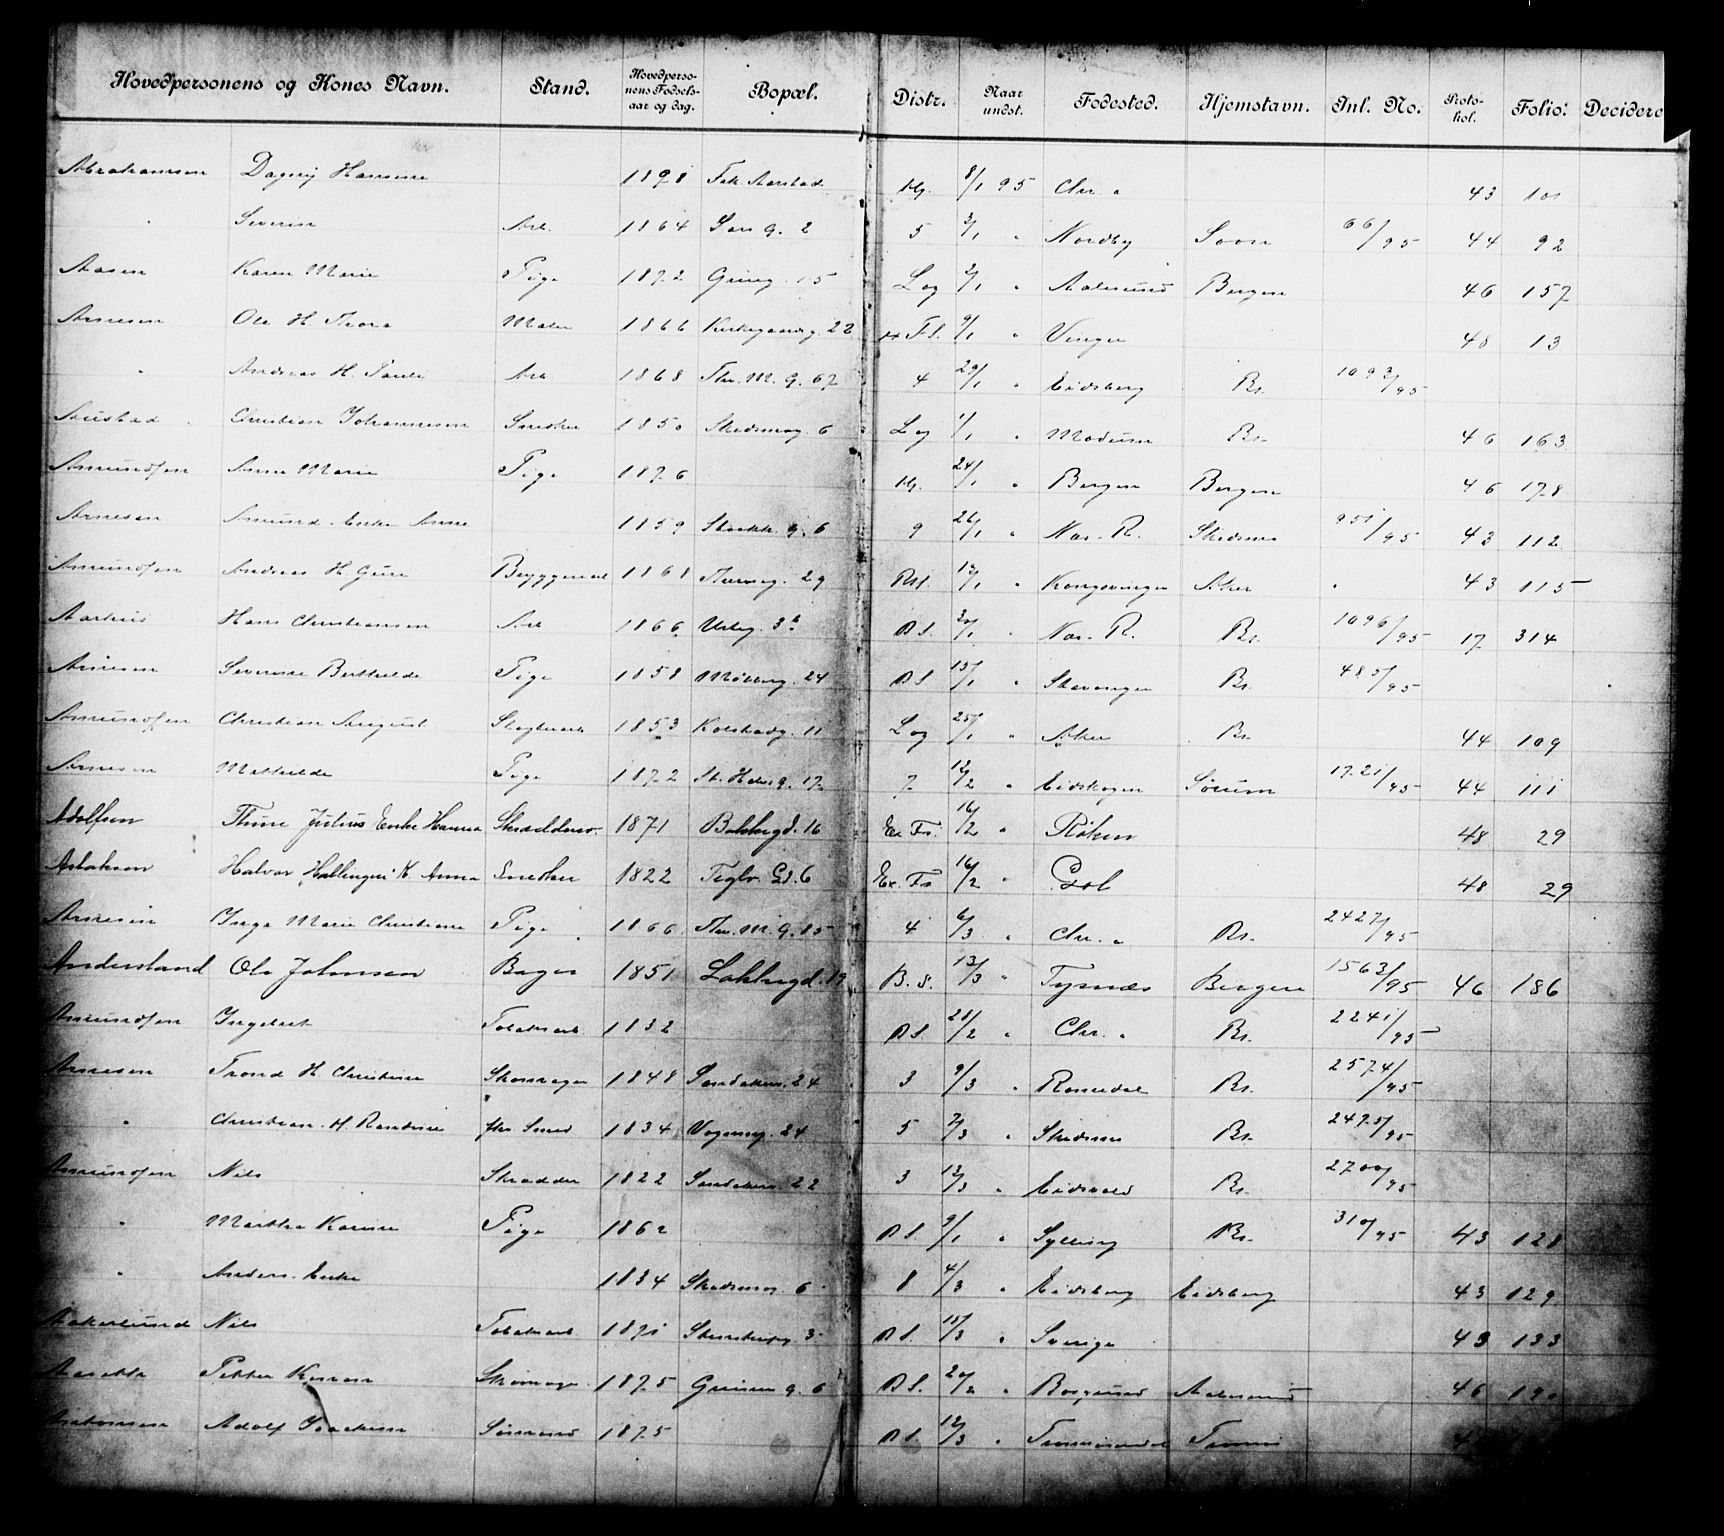 Hovedpersonens og Kones Navn. Stand. Hovedperso-nens Fødsels-aar og dag. Bopæl. Distr. Naar undst. Fødested. Hjemstavn. Inl. No. Proto-kol. Folio: Decidere
Abrahamsen Dagny Hansine 1898 Aarstad 8/1 95 Chr. 43 101
" Severin Arb. 1864 g. 2 5 3/1 " Nordby Soon 66/95 44 92
Aasen Karen Marie Pige 1872 Grüng. 15 Log 2/1 " Aalesund Bergen 46 157
Arnesen Ole H. Thora Maler 1866 Kirkegaardsg. 22 Fs. 9/1 " Vinger 48 13
" Andreas H. Arb 1868 Thv. M. g. 67 4 29/1 " Eidsberg Bs. 1093/95
Christian Johannesen Snedker 1850 Skedsmog. 6 Log 1/1 " Modum Bs. 46 163
Amundsen Anne Marie Pige 1876 24/1 " Bergen Bergen 46 178
Arnesen Amund. Enke Anne 1859 Stockh. g. 6 9 26/1 " Nas. R. Skedsmo 951/95 43 112
Amundsen Andreas H. Guri Bryggeriarb 1868 29 12/1 " Kongsvinger Aker " 43 115
Aarhus Hans Christiansen Arb 1866 Urteg. 3 B S. 30/1 " Nas. R. Bs. 1096/95 17 314
Arnesen Severine Berthilde Pige 1858 Møllerg. 24 B S. 15/1 " Stavanger Bs. 485/95
Amundsen Christian August Slagterarb 1853 Kolstadg. 11 Log 25/1 " Aker Bs. 44 109
Arnesen Mathilde Pige 1872 St. Halvs. g. 17 7 12/2 " Eidskogen Sørum 1721/95 44 111
Adolfsen Thure Julius Enke Hanna Skrædders. 1871 Bakkegd. 16 Ex. Fs. 16/2 " Røken 48 29
Aslaksen Halvor Hallingen H. Anna Snedker 1822 Teglv. Gd. 6 Ex. Fs 16/2 " Gol 48 29
Arnesen Inga Marie Christiane Pige 1866 Thv. M. g. 85 4 6/3 " Chr. " Bs. 2427/95
Anderstand Ole Johnsen Bager 1851 Lakkegd. 19 B. S. 13/3 " Tysnæs Bergen 1563/95 46 186
Amundsen Ingebret Tobaksarb 1832 B S. 28/2 " Chr. " Bs. 2241/95
Arnesen Trond H. Christine Skomager 1848 Sandakerv. 24 3 9/3 " Romsdal Bs. 2574/95
" Christian H. Randine fhv. Smed 1834 Vognmg. 24 5 7/3 " Skedsmo Bs. 2475/95
Amundsen Nils Skrædder 1822 Sandakerv. 22 3 12/3 " Eidsvold Bs. 2700/95
" Martha Karine Pige 1862 B S. 9/1 " Sylling Bs. 310/95 43 128
" Anders. Enke 1834 Skedsmog. 6 8 4/3 " Eidsberg Eidsberg 43 129
Aakerlund Nils Tobaksarb 1871 Stenstrupg. 3 B S. 15/3 " Sverige 43 133
Petter Skomager 1875 Grünerg. 6 B S. 20/2 " Borgund Aalesund 46 190
Antonsen Adolf Joackim Sømand 1875 B S. 12/3 " Tromsøsundet Tromsø